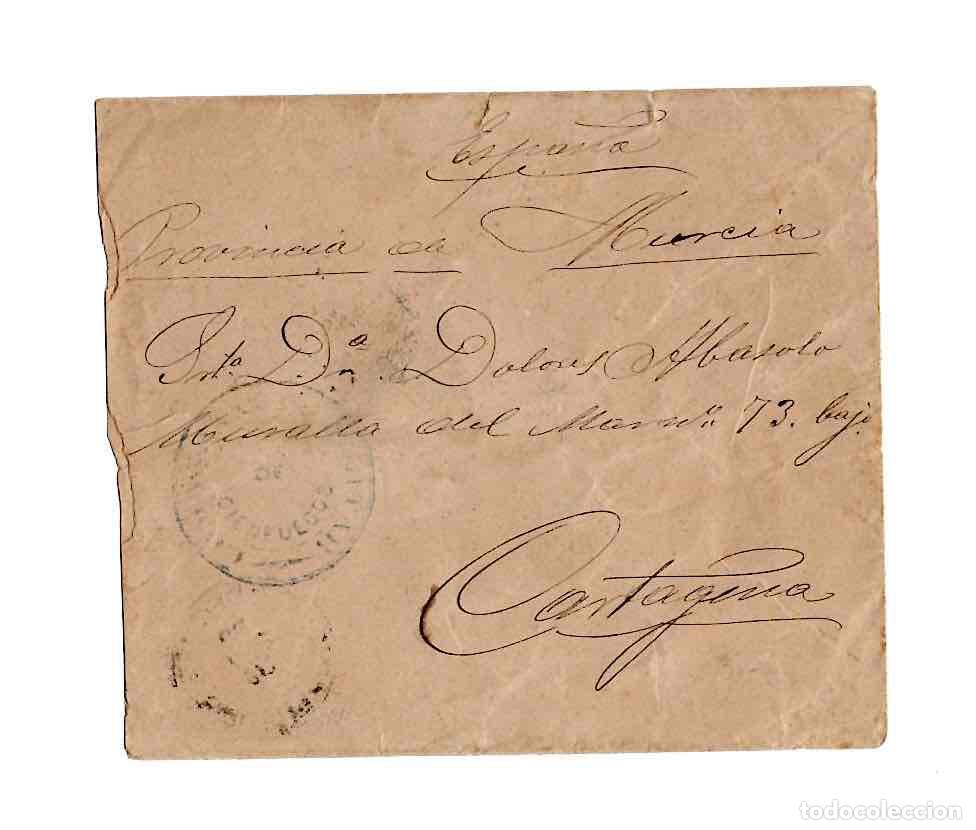 España
Provincia de Murcia
Srta. D.ª Dolores Abasolo
Muralla del Mar nº 73. bajo
DE
CIENFUEGOS
Cartagena
todocoleccion